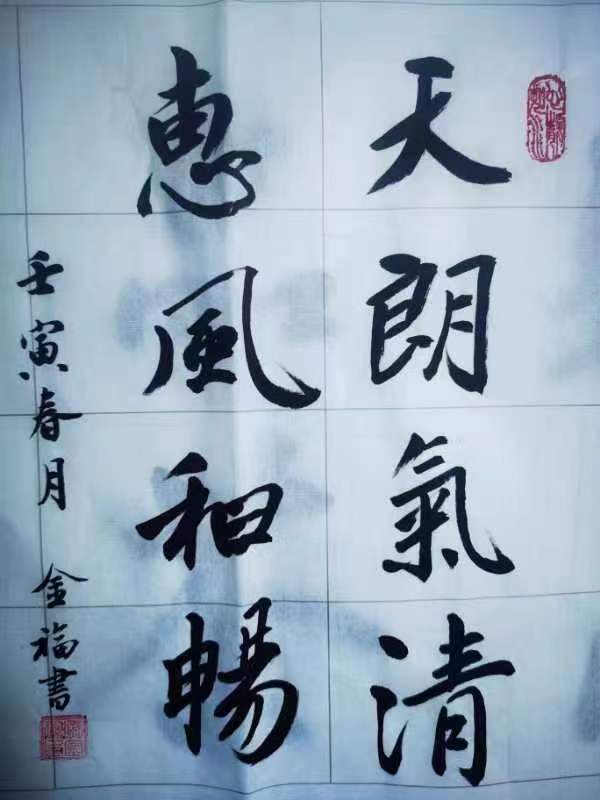 天朗氣清
惠風和暢
壬寅春月 金福書